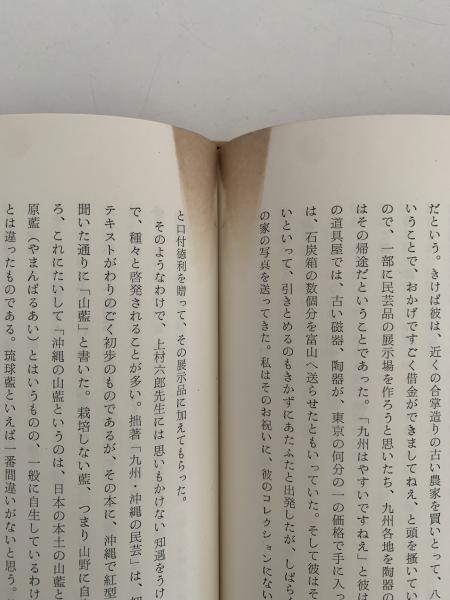 だという。きけば彼は、近くの合掌造りの古い農家を買いとって、八
いうことで、おかげですごく借金ができましてねえ、と頭を掻いてい
ので、一部に民芸品の展示場を作ろうと思いたち、九州各地を陶器の
はその帰途だということであった。「九州はやすいですねえ」と彼は
の道具屋では、古い磁器、陶器が、東京の何分の一の価格で手に入っ
は、石炭箱の数個分を富山へ送らせたともいっていた。そして彼はそ
いといって、引きとめるのもきかずにあたふたと出発したが、しばらく
の家の写真を送ってきた。私はそのお祝いに、彼のコレクションにない
と口付徳利を贈って、その展示品に加えてもらった。
そのようなわけで、上村六郎先生には思いもかけない知遇をうけ
で、種々と啓発されることが多い。拙著「九州・沖縄の民芸」は、
テキストがわりのごく初歩のものであるが、その本に、沖縄で紅型
聞いた通りに「山藍」と書いた。栽培しない藍、つまり山野に自
ろ、これにたいして「沖縄の山藍というのは、日本の本土の山藍と
原藍（やまんばるあい）とはいうものの、一般に自生しているわけ
とは違ったものである。琉球藍といえば一番間違いがないと思う。